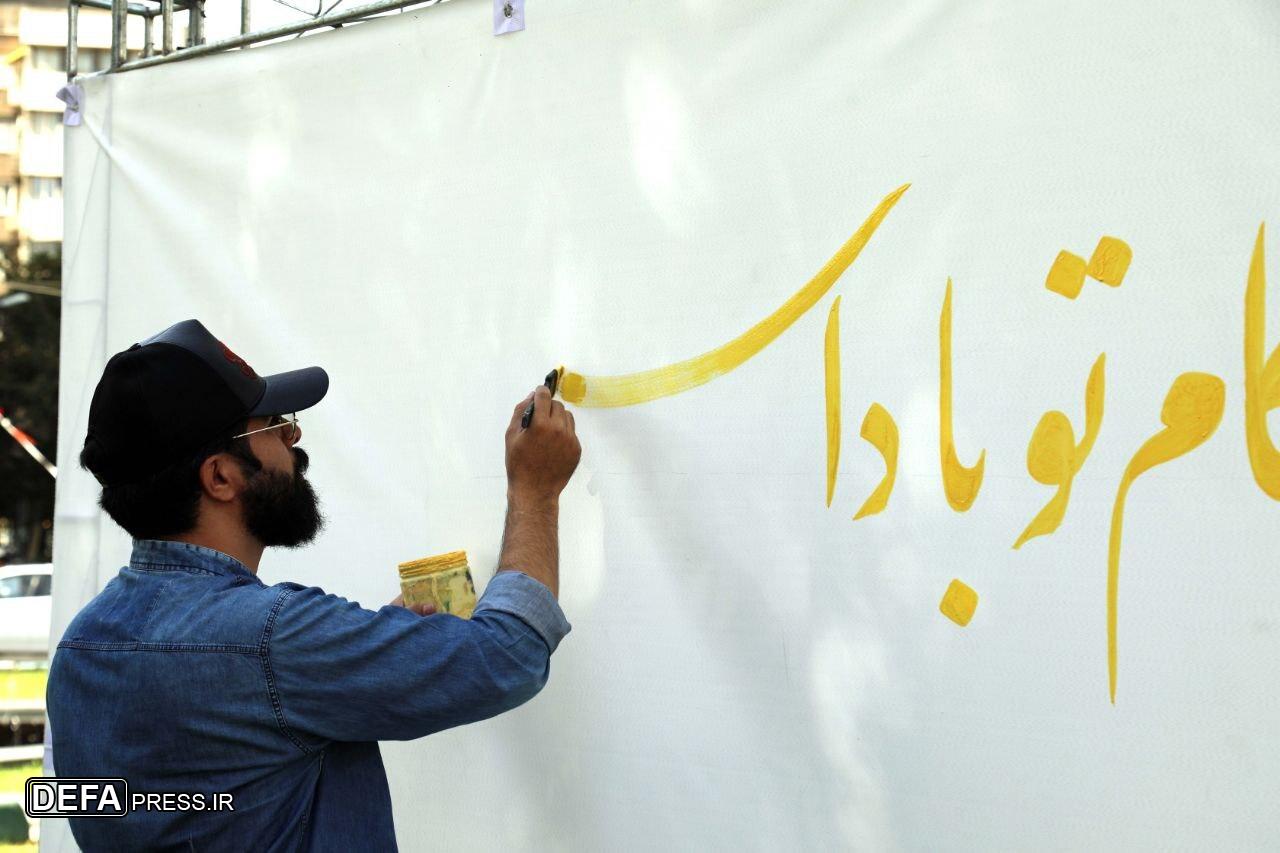 کام تو بادا
DEFA PRESS.IR